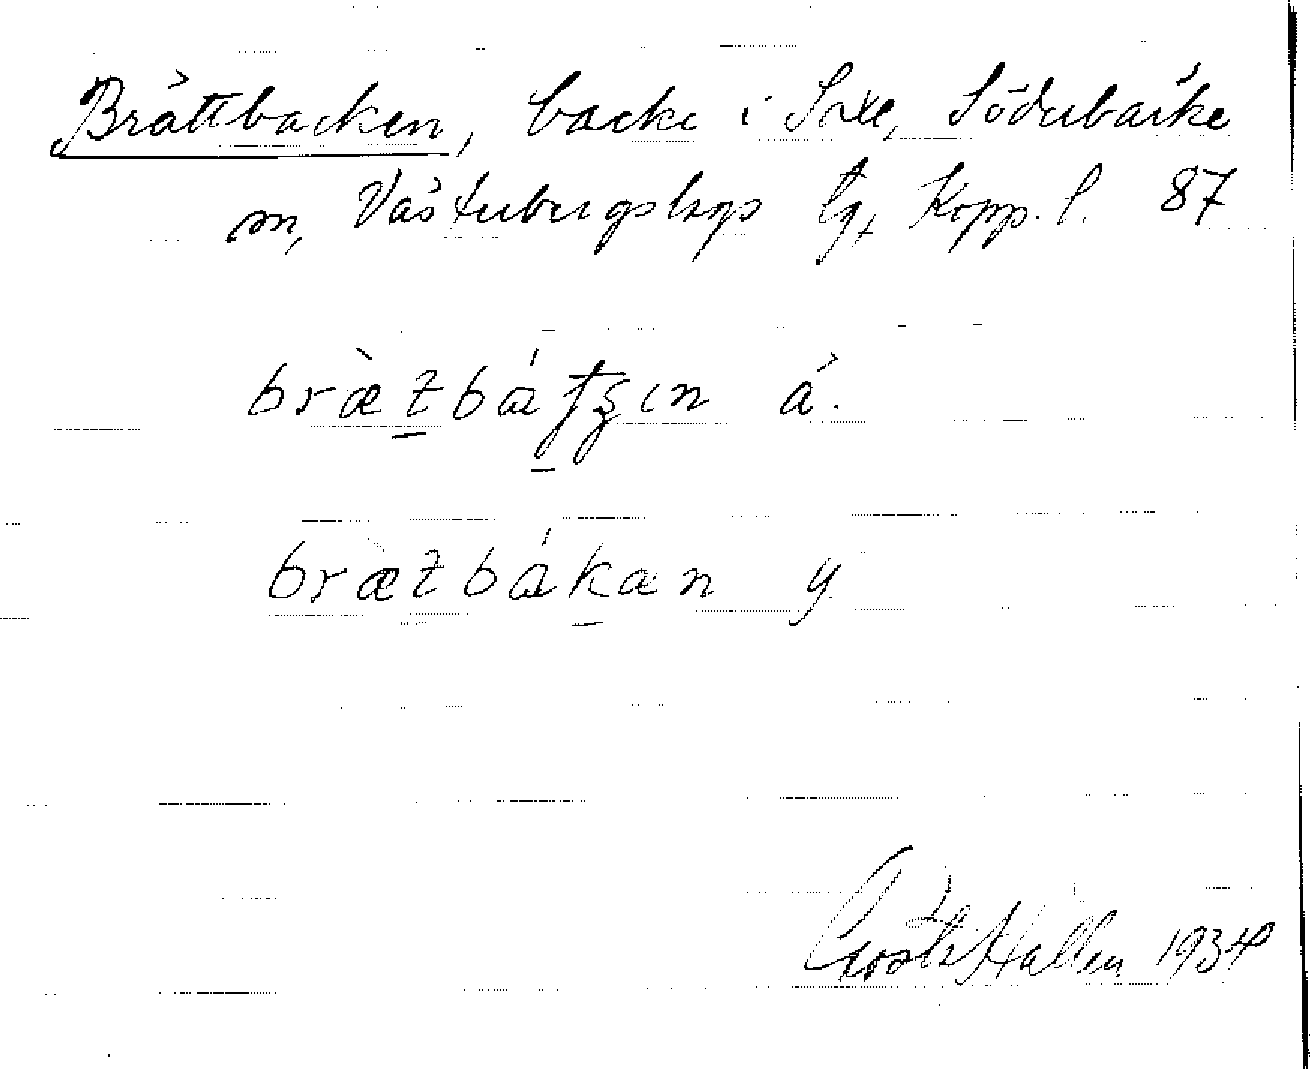 Brättbacken, backe i Saxe, Söderbärke
sn, Västerbergslags tg, Kopp. l. 87
brætbáʈʂin ä.
brætbákan y
Gösta Hallen 1934